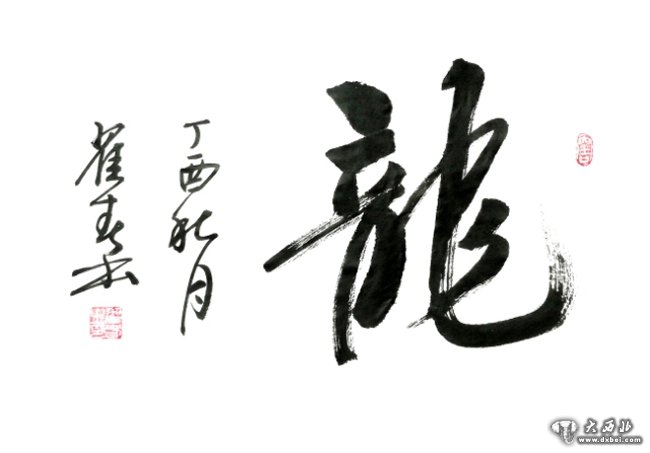 龍
丁酉秋月
翟春
大西北
www.dxbei.com